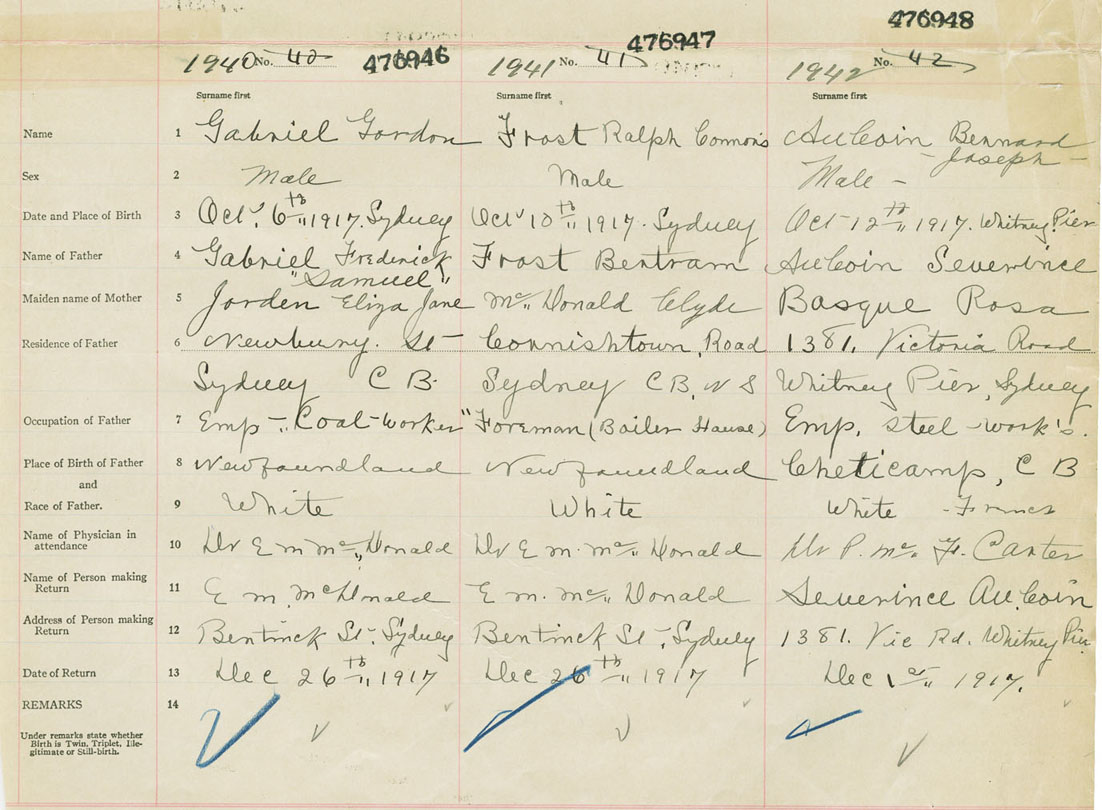 476948
1940 No. 40 476946 1941 No. 41 476947 1942 No. 42
Surname first Surname first Surname first
Name 1 Gabriel Gordon Frost Ralph Connors AuCoin Bernard
- Joseph -
Sex 2 Male Male Male -
Date and Place of Birth 3 Oct. 6th 1917. Sydney Oct 10th 1917. Sydney Oct 12th 1917. Whitney Pier
Name of Father 4 Gabriel Frederick Frost Bertram AuCoin Severince
"Samuel"
Maiden name of Mother 5 Jorden Eliza Jane Mc Donald Clyde Basque Rosa
Residence of Father 6 Newbury. St Cornishtown, Road 1381, Victoria Road
Sydney C B. Sydney C B, N S Whitney Pier, Sydney
Occupation of Father 7 Emp - "Coal-worker" Foreman (Boiler House) Emp, steel-work's.
Place of Birth of Father 8 Newfoundland Newfoundland Cheticamp, C B
and
Race of Father. 9 White White White - French
Name of Physician in
attendance 10 Dr E m Mc Donald Dr E m. Mc Donald Dr P. Mc F. Carter
Name of Person making
Return 11 E m, McDonald E m. Mc Donald Severince AuCoin
Address of Person making
Return 12 Bentinck St. Sydney Bentinck St, Sydney 1381. Vic Rd. Whitney Pier
Date of Return 13 Dec 26th 1917 Dec 26th 1917 Dec 1st 1917.
REMARKS 14
Under remarks state whether
Birth is Twin, Triplet, Ille-
gitimate or Still-birth.